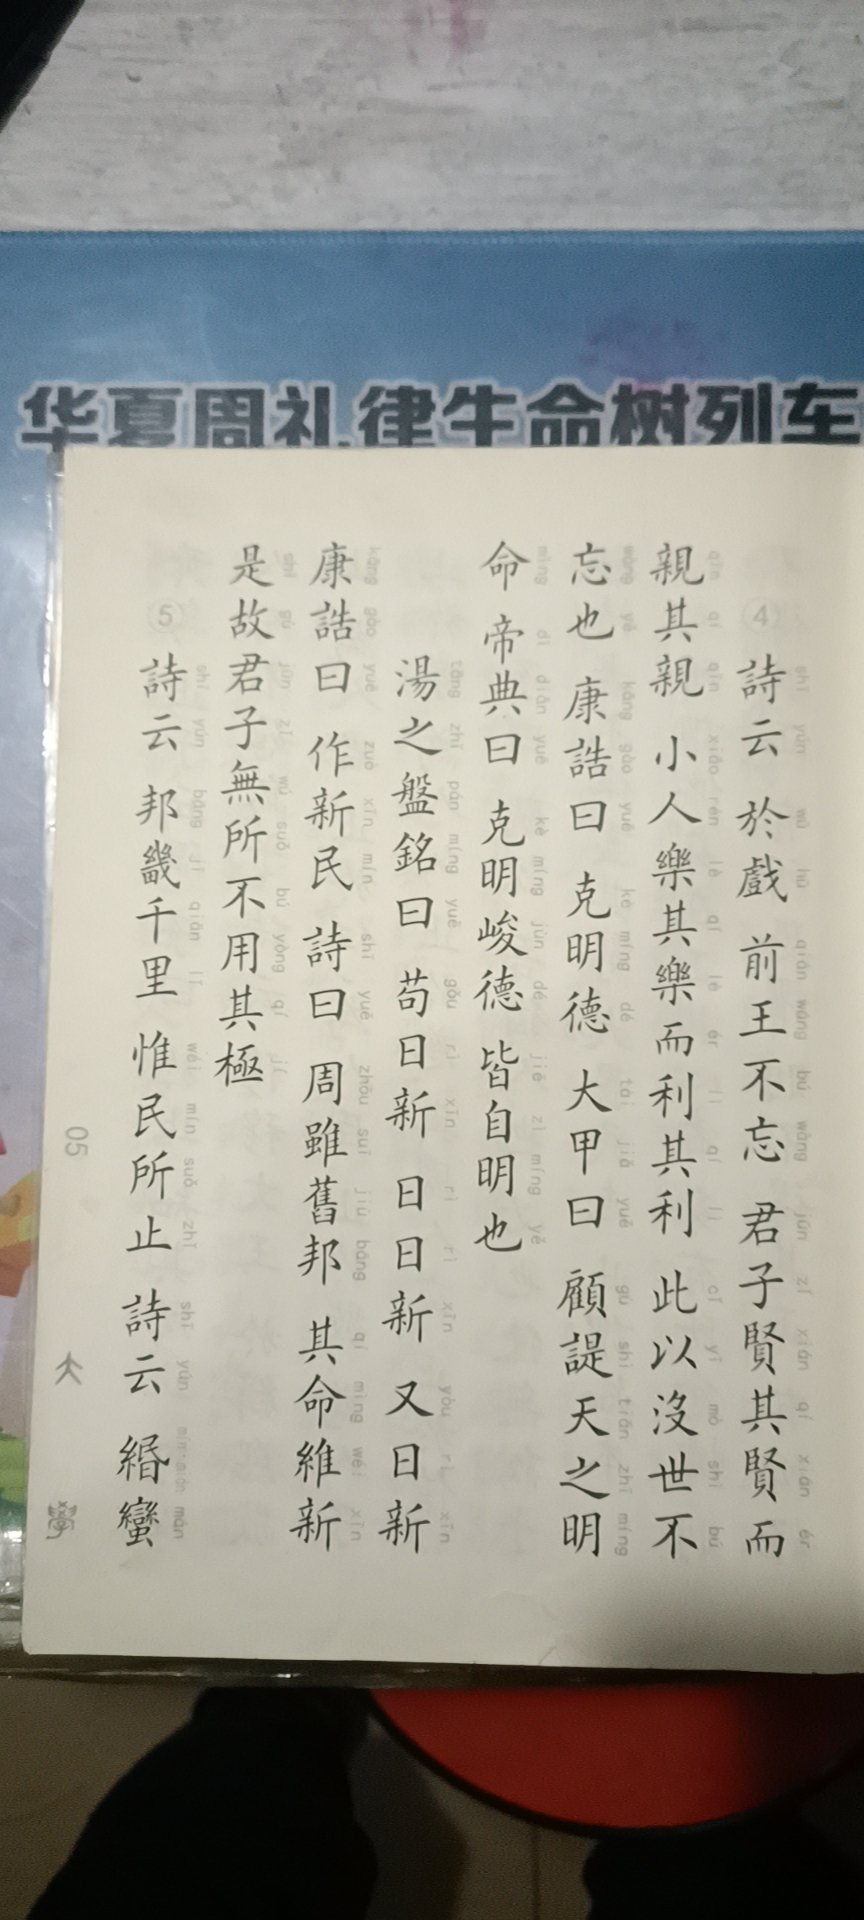 华夏周礼律生命树列车
④ 詩云 於戲 前王不忘 君子賢其賢而
親其親 小人樂其樂而利其利 此以沒世不
忘也 康誥曰 克明德 大甲曰 顧諟天之明
命 帝典曰 克明峻德 皆自明也
湯之盤銘曰 苟日新 日日新 又日新
康誥曰 作新民 詩曰 周雖舊邦 其命維新
是故君子無所不用其極
⑤ 詩云 邦畿千里 惟民所止 詩云 緡蠻
05
大學